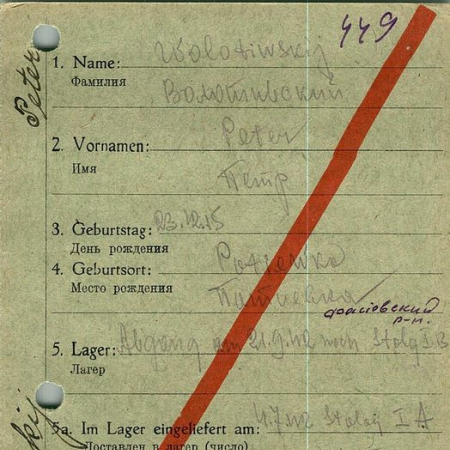 449
Peter
1. Name: Wolotiwskij
Фамилия
Волотивский
2. Vornamen: Peter
Имя
Петр
3. Geburtstag: 23.12.15
День рождения
4. Geburtsort: Potiewka
Место рождения Потиевка
р-н.
5. Lager: Abgang am 21.9.42 nach Stalag I B
Лагер
5a. Im Lager eingeliefert am: Stalag I A
Доставлен в лагер (число)